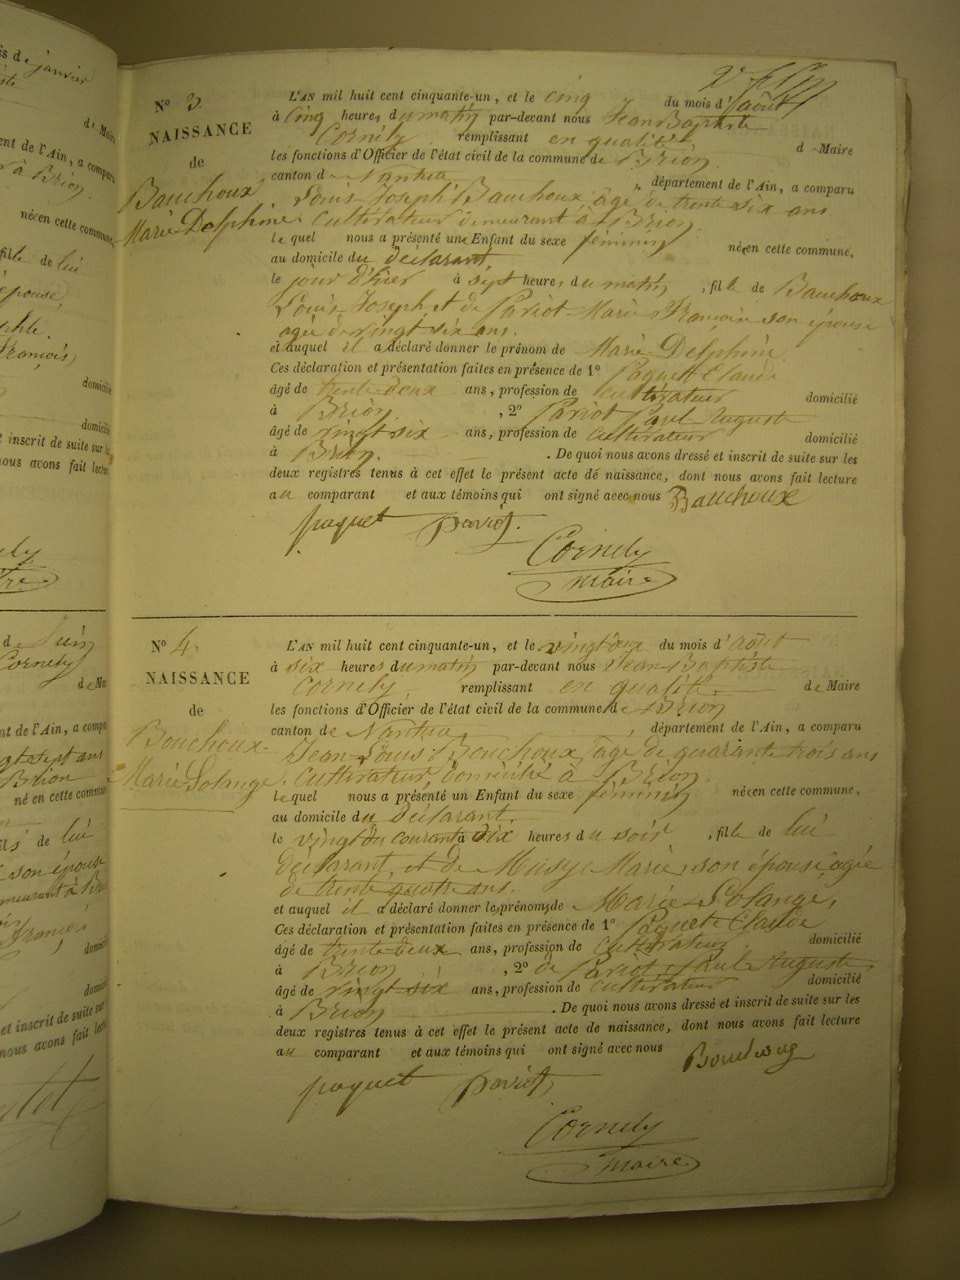 N° 3.
NAISSANCE
de
Bauchoux
Marie Delphine.
L'AN mil huit cent cinquante-un, et le cinq du mois d'août
à cinq heures du matin par-devant nous Jean Baptiste
Cornély remplissant en qualité de Maire
les fonctions d'Officier de l'état civil de la commune de Brion
canton de Nantua, département de l'Ain, a comparu
Louis Joseph Bauchoux, agé de trente six ans
Cultivateur demeurant à Brion.
le quel nous a présenté un Enfant du sexe féminin né en cette commune,
au domicile du déclarant
le jour d'hier à sept heures du matin, fille de Bauchoux
Louis Joseph et de Pariot Marie Françoise son épouse
agée de vingt six ans.
et auquel il a déclaré donner le prénom de Marie Delphine
Ces déclaration et présentation faites en présence de 1° Paquet Claude
âgé de trente deux ans, profession de cultivateur domicilié
à Brion, 2° Pariot Paul Auguste
âgé de vingt six ans, profession de Cultivateur domicilié
à Brion. De quoi nous avons dressé et inscrit de suite sur les
deux registres tenus à cet effet le présent acte de naissance, dont nous avons fait lecture
au comparant et aux témoins qui ont signé avec nous Bauchoux
paquet pariot
Cornély
maire
N° 4.
NAISSANCE
de
Bouchoux
Marie Solange
L'AN mil huit cent cinquante-un, et le vingt deux du mois d'août
à six heures du matin par-devant nous Jean Baptiste
Cornély, remplissant en qualité de Maire
les fonctions d'Officier de l'état civil de la commune de Brion
canton de Nantua, département de l'Ain, a comparu
Jean Louis Bouchoux, agé de quarante trois ans
Cultivateur, domicilié à Brion.
le quel nous a présenté un Enfant du sexe féminin né en cette commune,
au domicile du déclarant.
le vingt du courant à dix heures du soir, fille de lui
déclarant, et de Marie son épouse agée
de trente quatre ans.
et auquel il a déclaré donner les prénoms de Marie Solange,
Ces déclaration et présentation faites en présence de 1° Paquet Claude
âgé de trente-deux ans, profession de Cultivateur domicilié
à Brion, 2° de Pariot Paul Auguste
âgé de vingt six ans, profession de Cultivateur domicilié
à Brion. De quoi nous avons dressé et inscrit de suite sur les
deux registres tenus à cet effet le présent acte de naissance, dont nous avons fait lecture
au comparant et aux témoins qui ont signé avec nous
paquet pariot
Cornély
maire